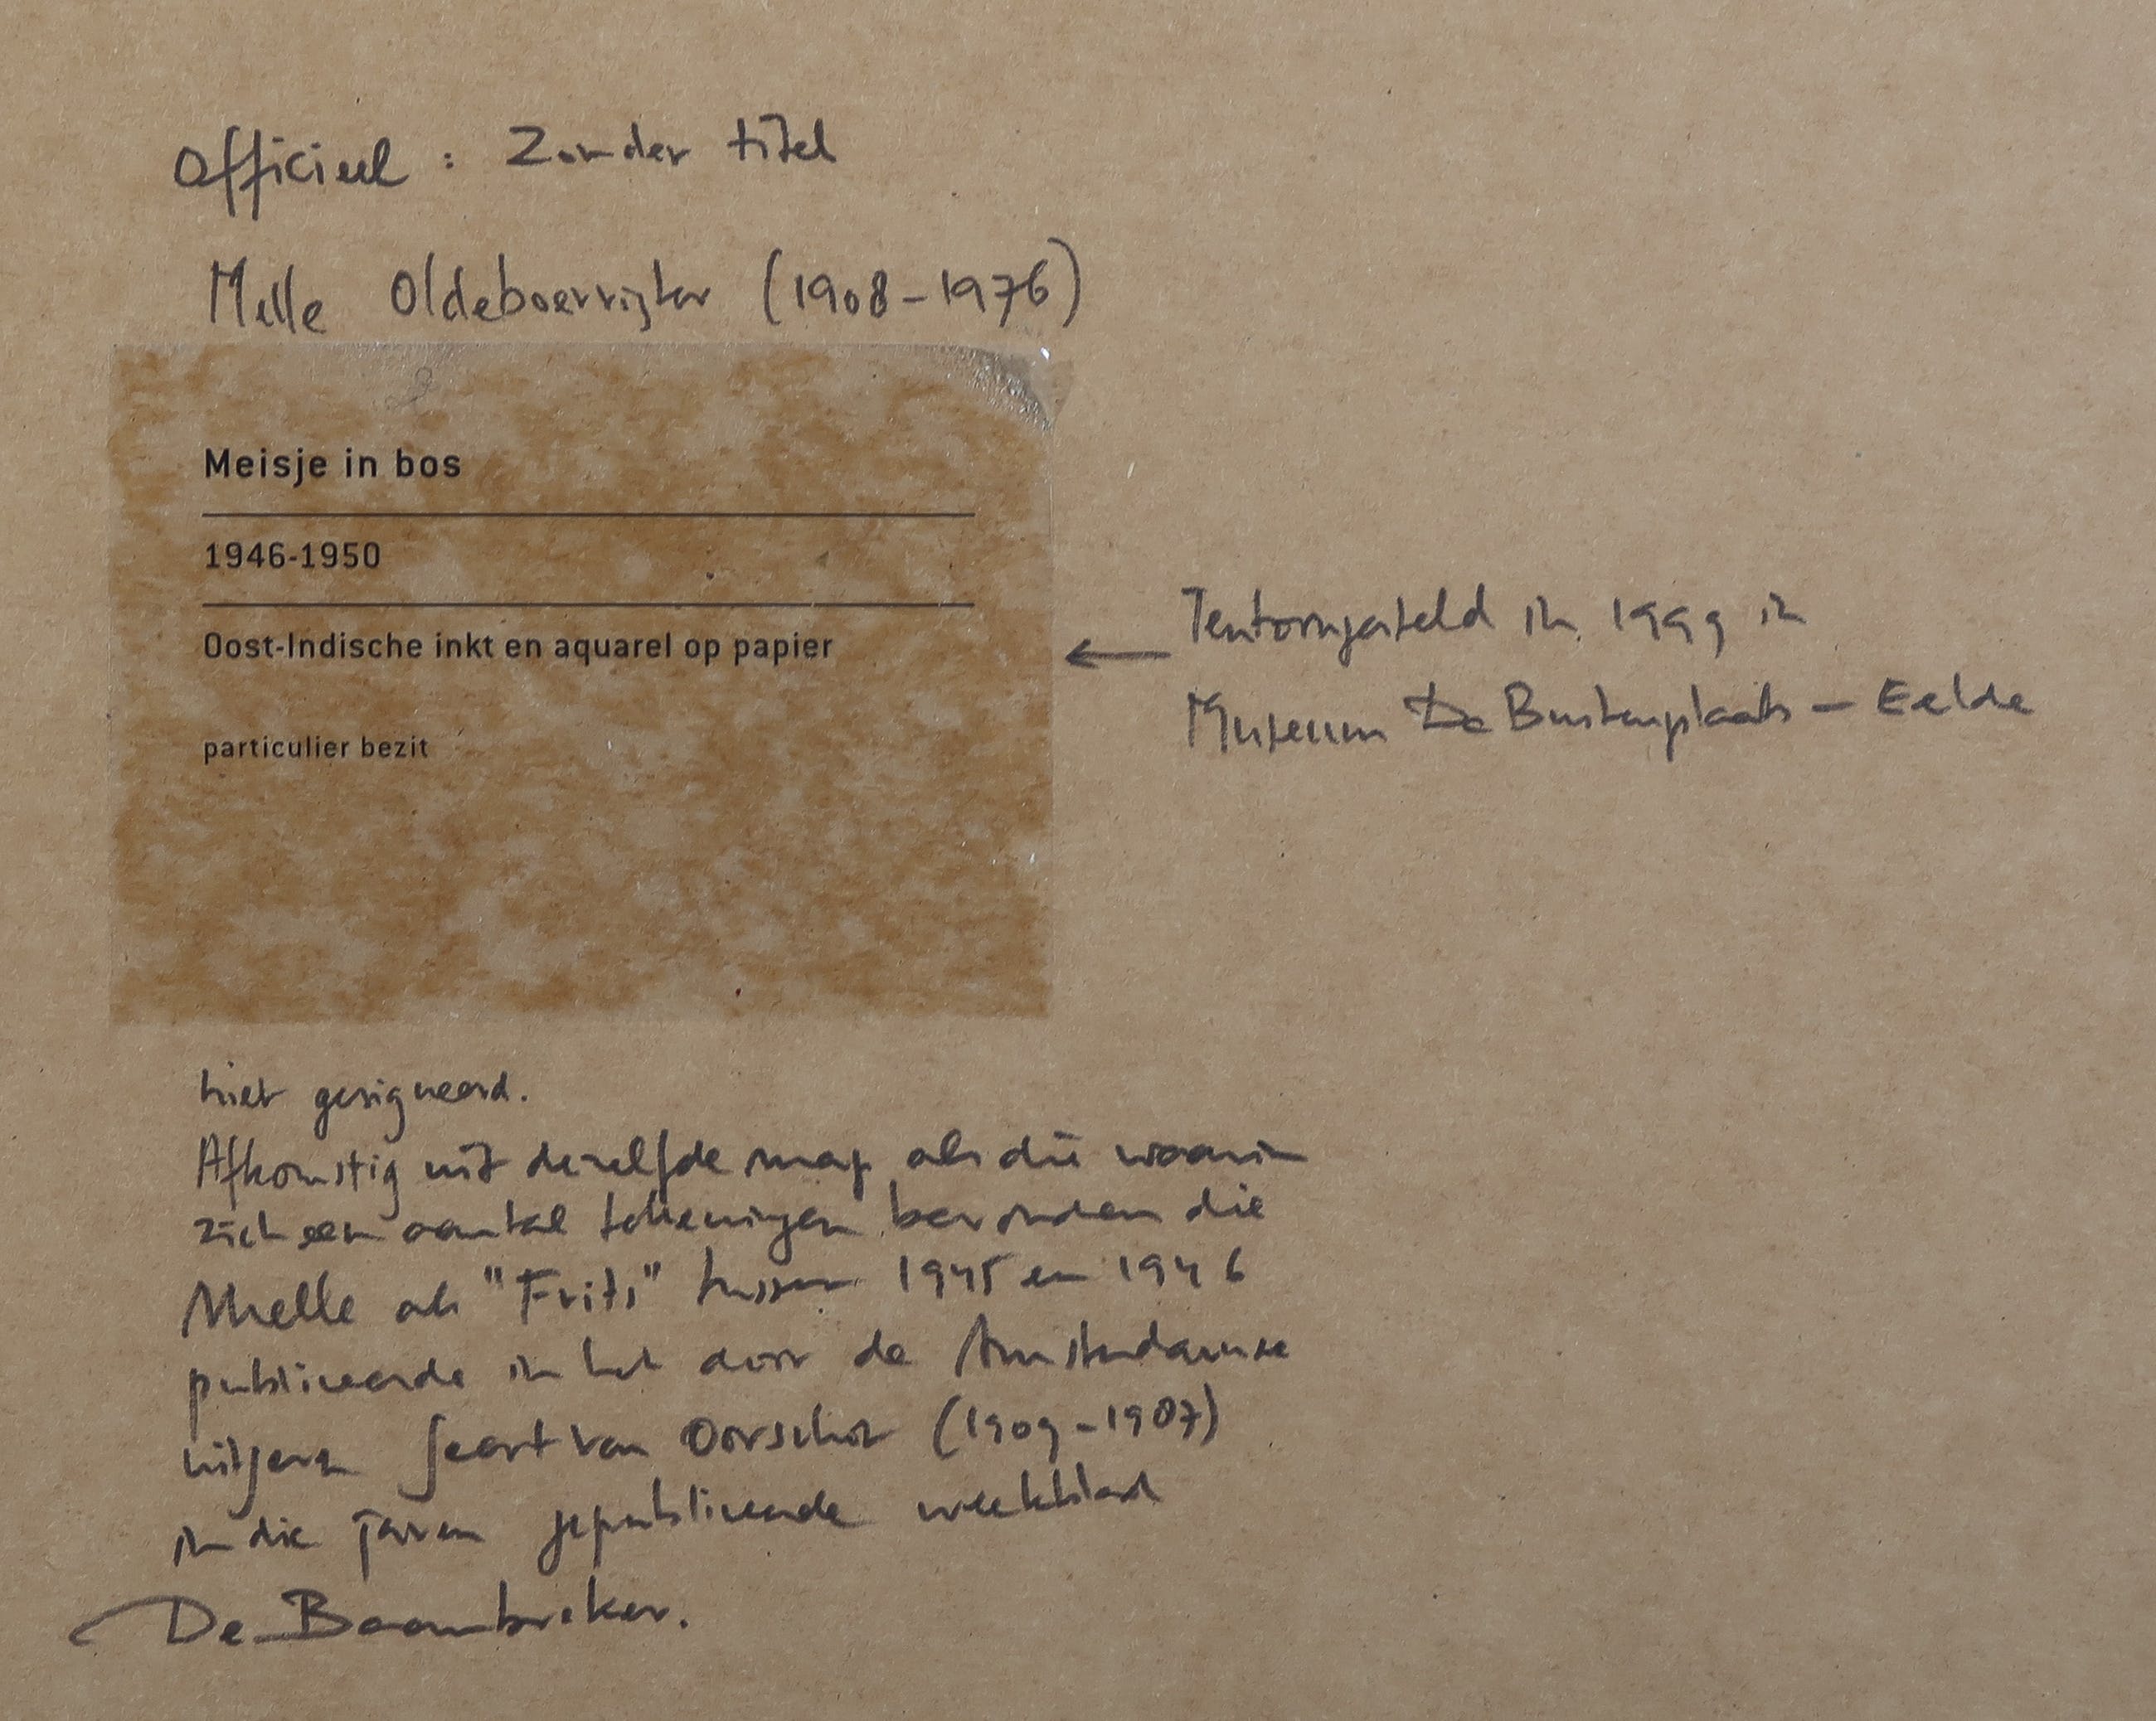 Officieel : Zonder titel
Melle Oldeboerrigter (1908-1976)
Meisje in bos
1946-1950
Oost-Indische inkt en aquarel op papier
particulier bezit
← Tentoongesteld in 1999 in
Museum De Buitenplaats - Eelde
niet gesigneerd.
Afkomstig uit dezelfde map als die waarin
zich een aantal tekeningen bevonden die
Melle als "Frits" tussen 1945 en 1946
publiceerde in het door de Amsterdamse
uitgever Geert van Oorschot (1909-1987)
in die jaren gepubliceerde weekblad
De Baanbreker.